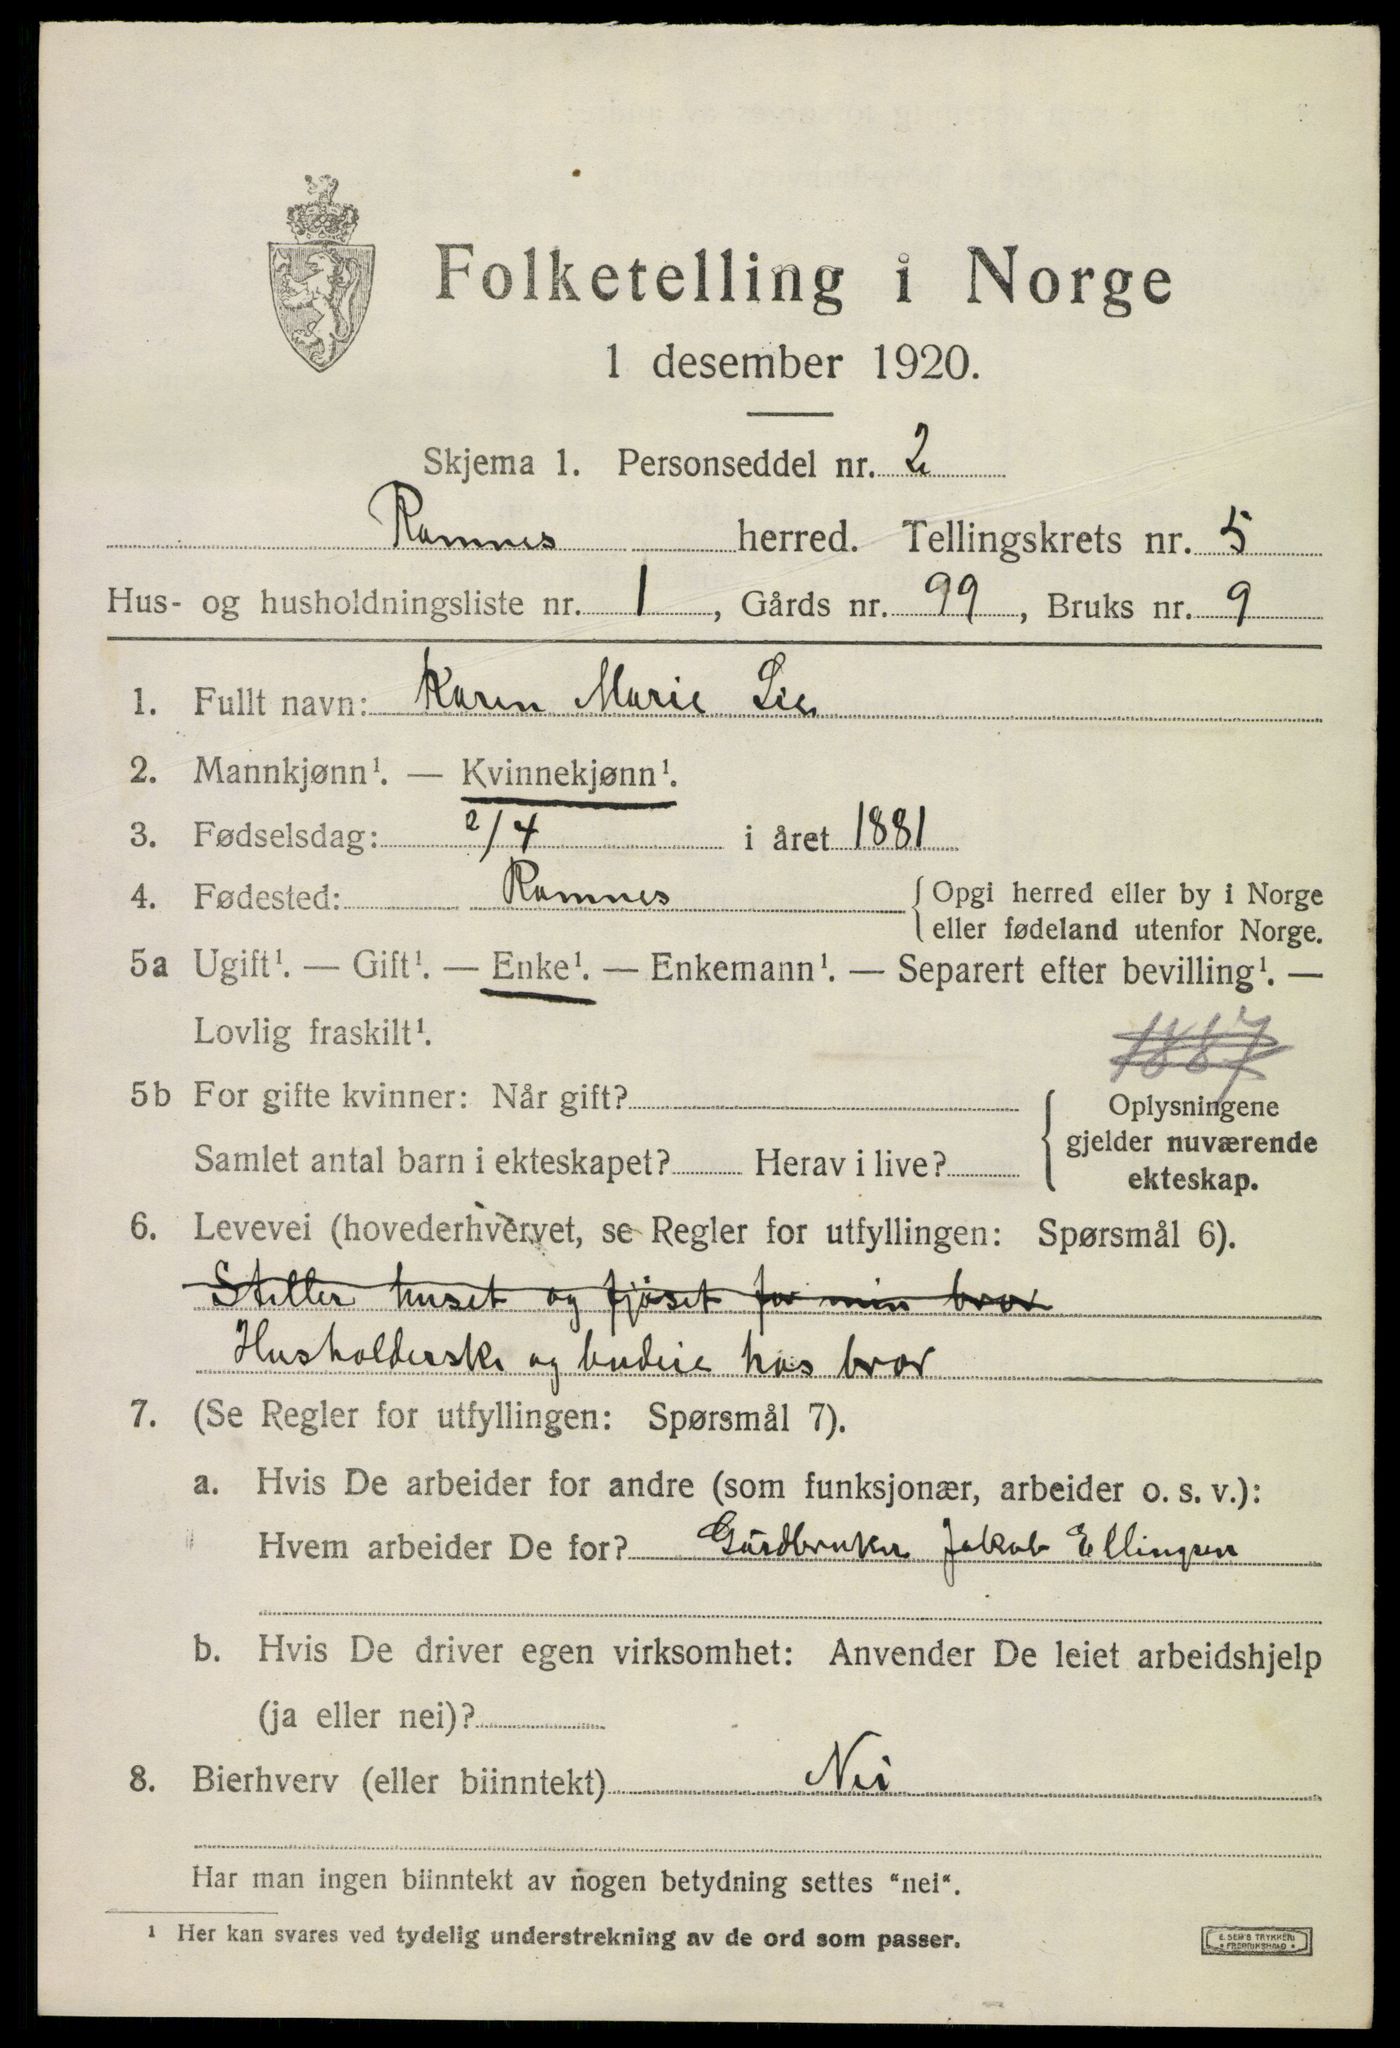 Folketelling i Norge
1 desember 1920.
Skjema 1. Personseddel nr. 2
Ramnes herred. Tellingskrets nr. 5
Hus- og husholdningsliste nr. 1, Gårds nr. 99, Bruks nr. 9
1. Fullt navn: Karen Marie Lie
2. Mannkjønn¹. — Kvinnekjønn¹.
3. Fødselsdag: 2/4 i året 1881
4. Fødested: Ramnes { Opgi herred eller by i Norge
eller fødeland utenfor Norge.
5a Ugift¹. — Gift¹. — Enke¹. — Enkemann¹. — Separert efter bevilling¹. —
Lovlig fraskilt¹.
1887
5b For gifte kvinner: Når gift? { Oplysningene
gjelder nuværende
Samlet antal barn i ekteskapet? Herav i live?
ekteskap.
6. Levevei (hovederhvervet, se Regler for utfyllingen: Spørsmål 6).
Steller huset og fjøset for min bror
Husholderske og budeie hos bror
7. (Se Regler for utfyllingen: Spørsmål 7).
a. Hvis De arbeider for andre (som funksjonær, arbeider o. s. v.):
Hvem arbeider De for? Gårdbruker Jakob Ellingsen
b. Hvis De driver egen virksomhet: Anvender De leiet arbeidshjelp
(ja eller nei)?
8. Bierhverv (eller biinntekt) Nei
Har man ingen biinntekt av nogen betydning settes "nei".
¹ Her kan svares ved tydelig understrekning av de ord som passer.
E. SEM'S TRYKKERI
FREDRIKSHALD